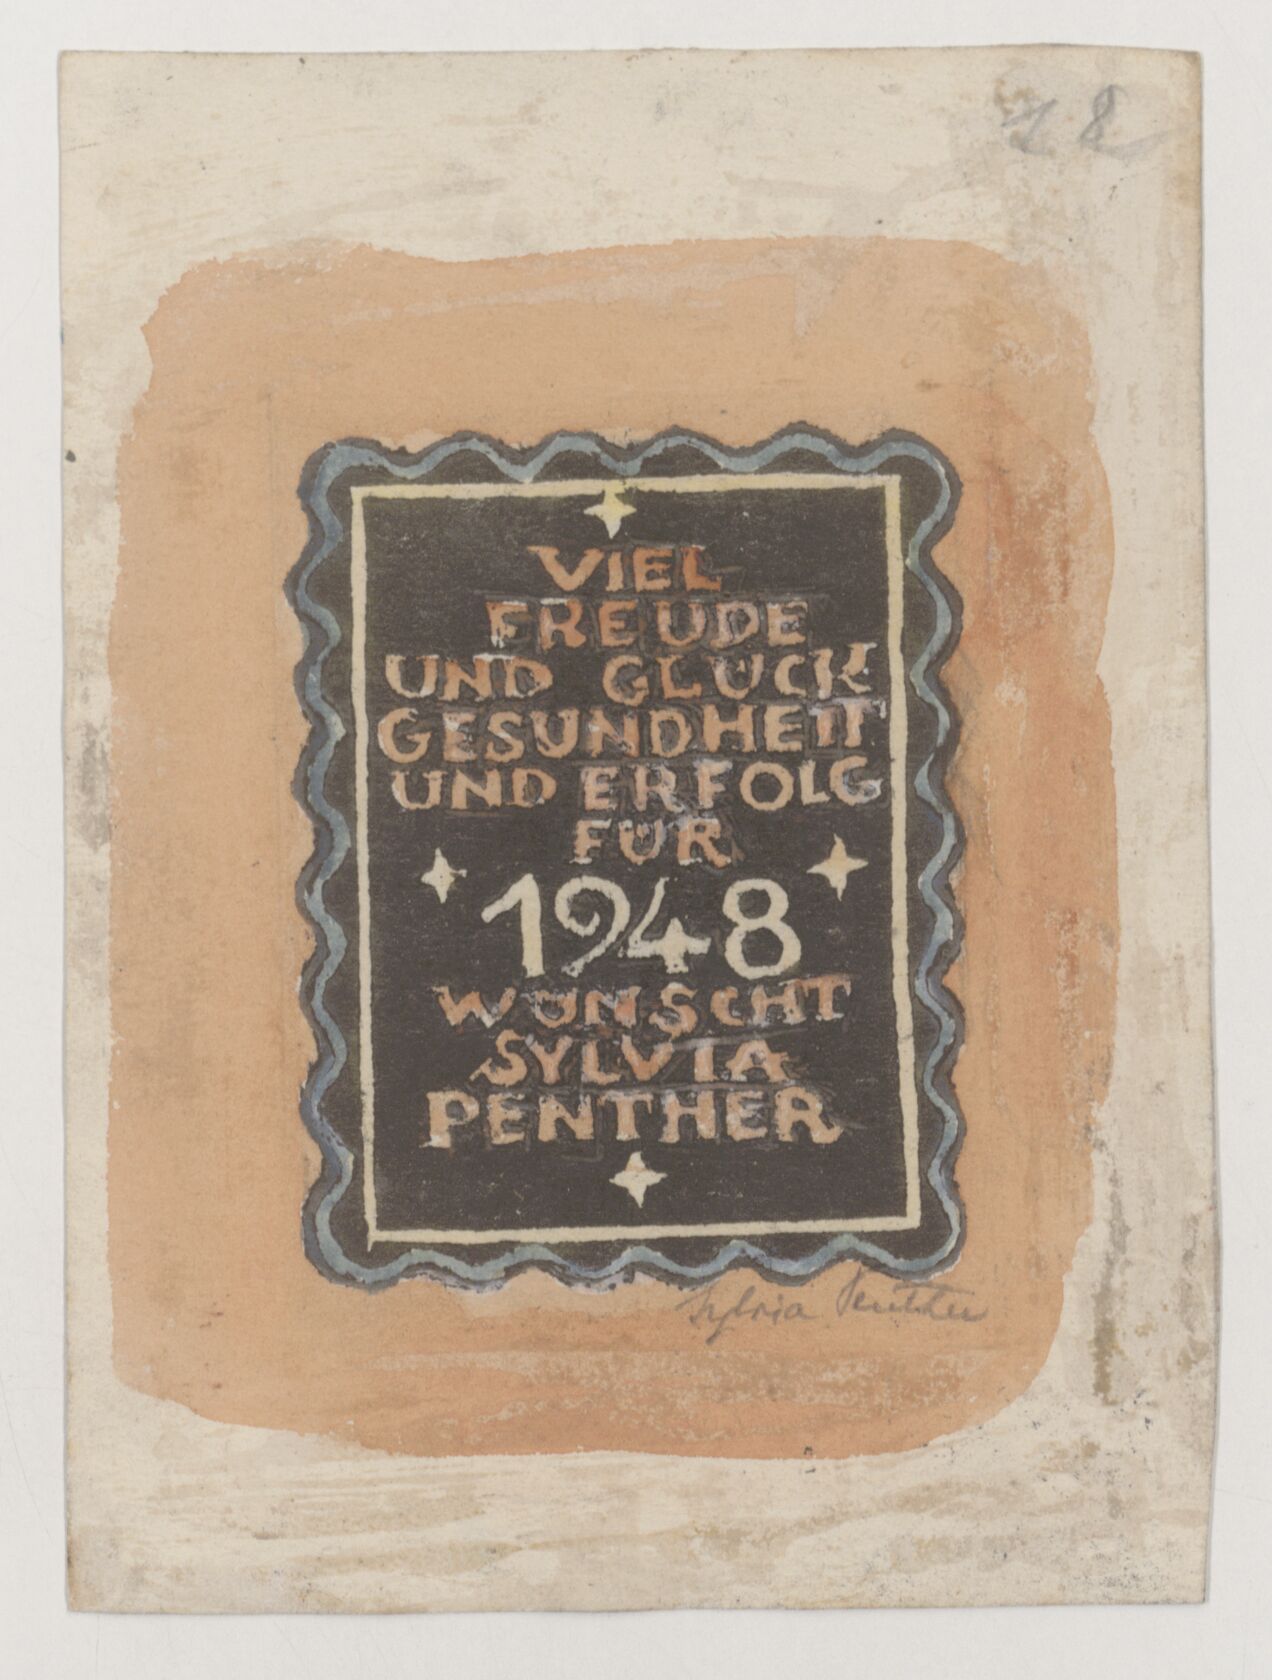 18
VIEL
FREUDE
UND GLÜCK
GESUNDHEIT
UND ERFOLG
FÜR
1948
WÜNSCHT
SYLVIA
PENTHER
Sylvia Penther